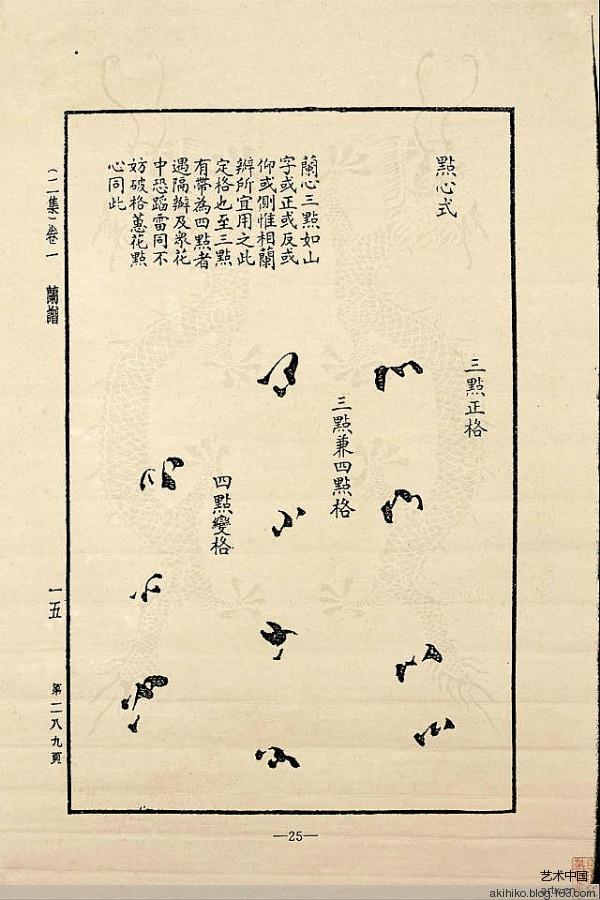 點心式
蘭心三點如山
字或正或反或
仰或側惟相蘭
辦所宜用之此
定格也至三點
有帶為四點者
遇隔瓣及衆花
中恐蹈雷同不
妨破格蕙花點
心同此
三點正格
三點兼四點格
四點變格
(二集)卷一 蘭譜
一五
第一八九頁
—25—
艺术中国
akihiko.blog.163.com